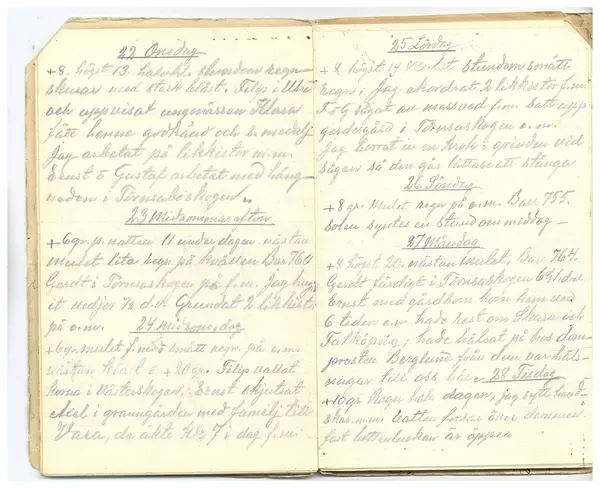 22 Onsdag
+8. högst 13. halvkl. stundom regn-
skurar med stark blåst, Filip i Ulvö
och uppvisat ungmärren Klara
fått henne godkänd och b. medalj
Jag arbetat på likkistor m.m.
Ernst o Gustaf arbetat med häng-
neden i Törnsaboskogen.
23 Midsommarafton
+6 gr. på natten 11 under dagen nästan
mulet lite regn på kvällen Bar 760
Gerdt i Törnsaskogen på f.m. Jag hug-
it vedjor 1/2 d.v. Grundat 2 likkistor
på e.m.
24 Midsom.dag
+6 gr. mulet f.m. o smått regn. på e.m.
nästan klart o +20 gr. Filip vallat
korna i Västerskogen, Ernst skjutsat
Axel i granngården med familj till
Vara, de åkte Kl 7 i dag f.m.
25 Lördag
+8 högst 14 Mulet stundom smått
regn, Jag ekordrat 2 likkistor f.m.
F o G sågat av massved f.m. satt upp
gerdesgård i Törnsaskogen e.m.
Jag borrat in en krok i grinden vid
sågen så den går lättare att stänga
26 Söndag
+8 gr. Mulet regn på e.m. Barr 755.
solen syntes en stund om middag -
27 Måndag
+8 högst 20. nästan mulet, Bar 764.
Gerdt färdigt i Törnsaskogen
Ernst med gårdkorn kom hem ved
6 tiden e.m. hade rest om Skara och
Falköping, hade hälsat på hos dom-
prosten Berglund från dem var häls-
ningar till oss här.
28 Tisdag
+10 gr Regn hela dagen, jag sytt
skor m.m. Vatten forsar över dammen
fast bottenluckan är öppen